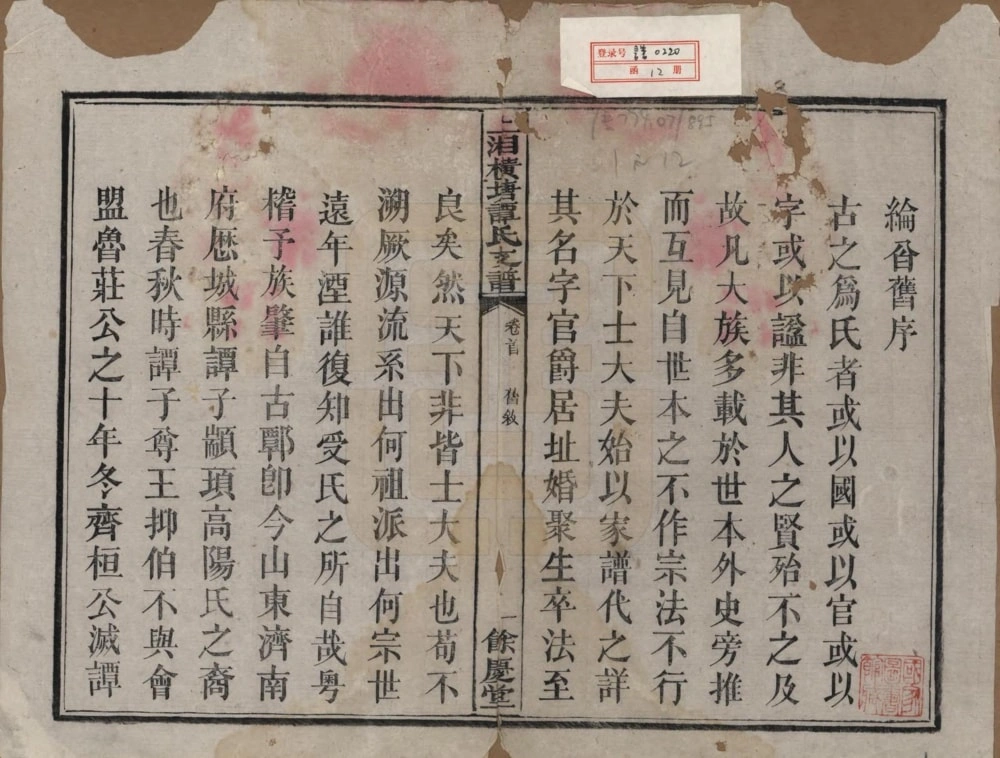 登录号 譜 0220
函 12 册
1~12
綸㕣舊序
古之爲氏者或以國或以官或以
字或以謚非其人之賢殆不之及
故凡大族多載於世本外史旁推
而互見自世本之不作宗法不行
於天下士大夫始以家譜代之詳
其名字官爵居址婚聚生卒法至
上湘橫塘譚氏支譜
卷首 舊敘
一 餘慶堂
良矣然天下非皆士大夫也苟不
溯厥源流系出何祖派出何宗世
遠年湮誰復知受氏之所自哉粵
稽予族肇自古鄲卽今山東濟南
府歷城縣譚子顓頊高陽氏之裔
也春秋時譚子尊王抑伯不與會
盟魯莊公之十年冬齊桓公滅譚